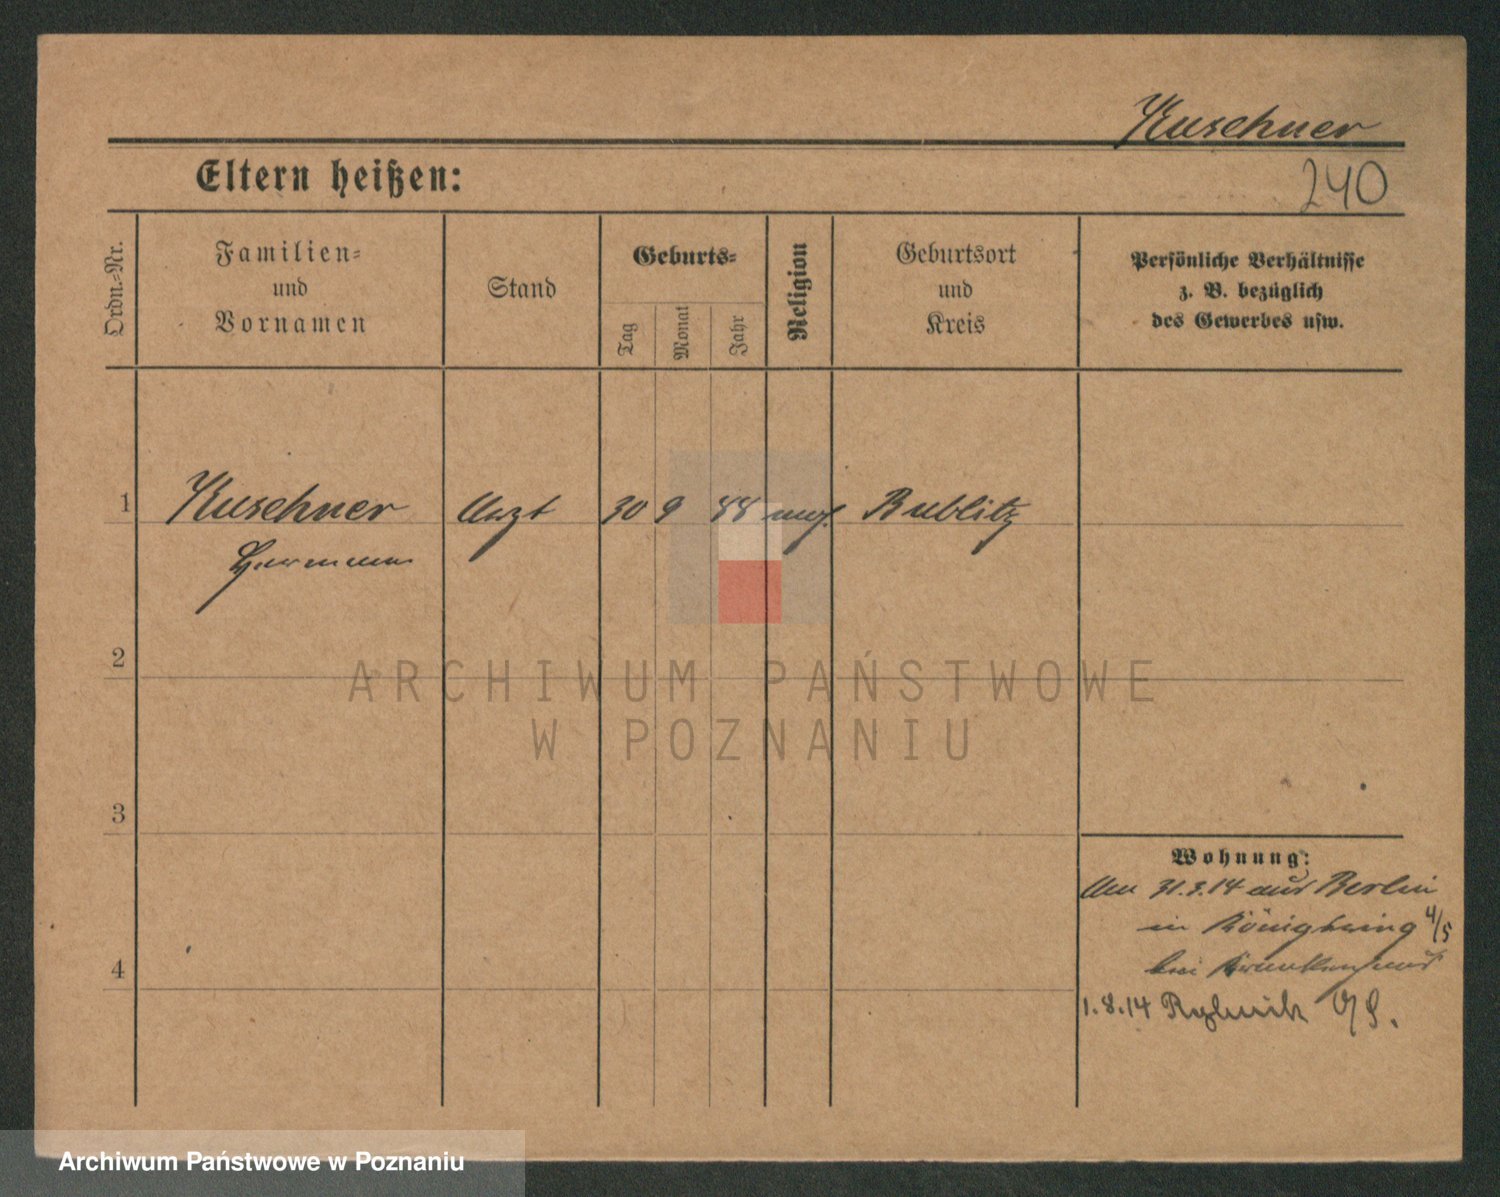 Kuschner
Eltern heißen:
240
Ordn.-Nr.
Familien-
und
Vornamen
Stand
Geburts-
Tag
Monat
Jahr
Religion
Geburtsort
und
Kreis
Persönliche Verhältnisse
z. B. bezüglich
des Gewerbes usw.
1 Kuschner Arzt 30 9 88 Bublitz
Hermann
2
ARCHIWUM PAŃSTWOWE
W POZNANIU
3
Wohnung:
Am 31.3.14 aus Berlin
in Königsring 4/5
bei
4
1.8.14 Rybnik O/S.
Archiwum Państwowe w Poznaniu